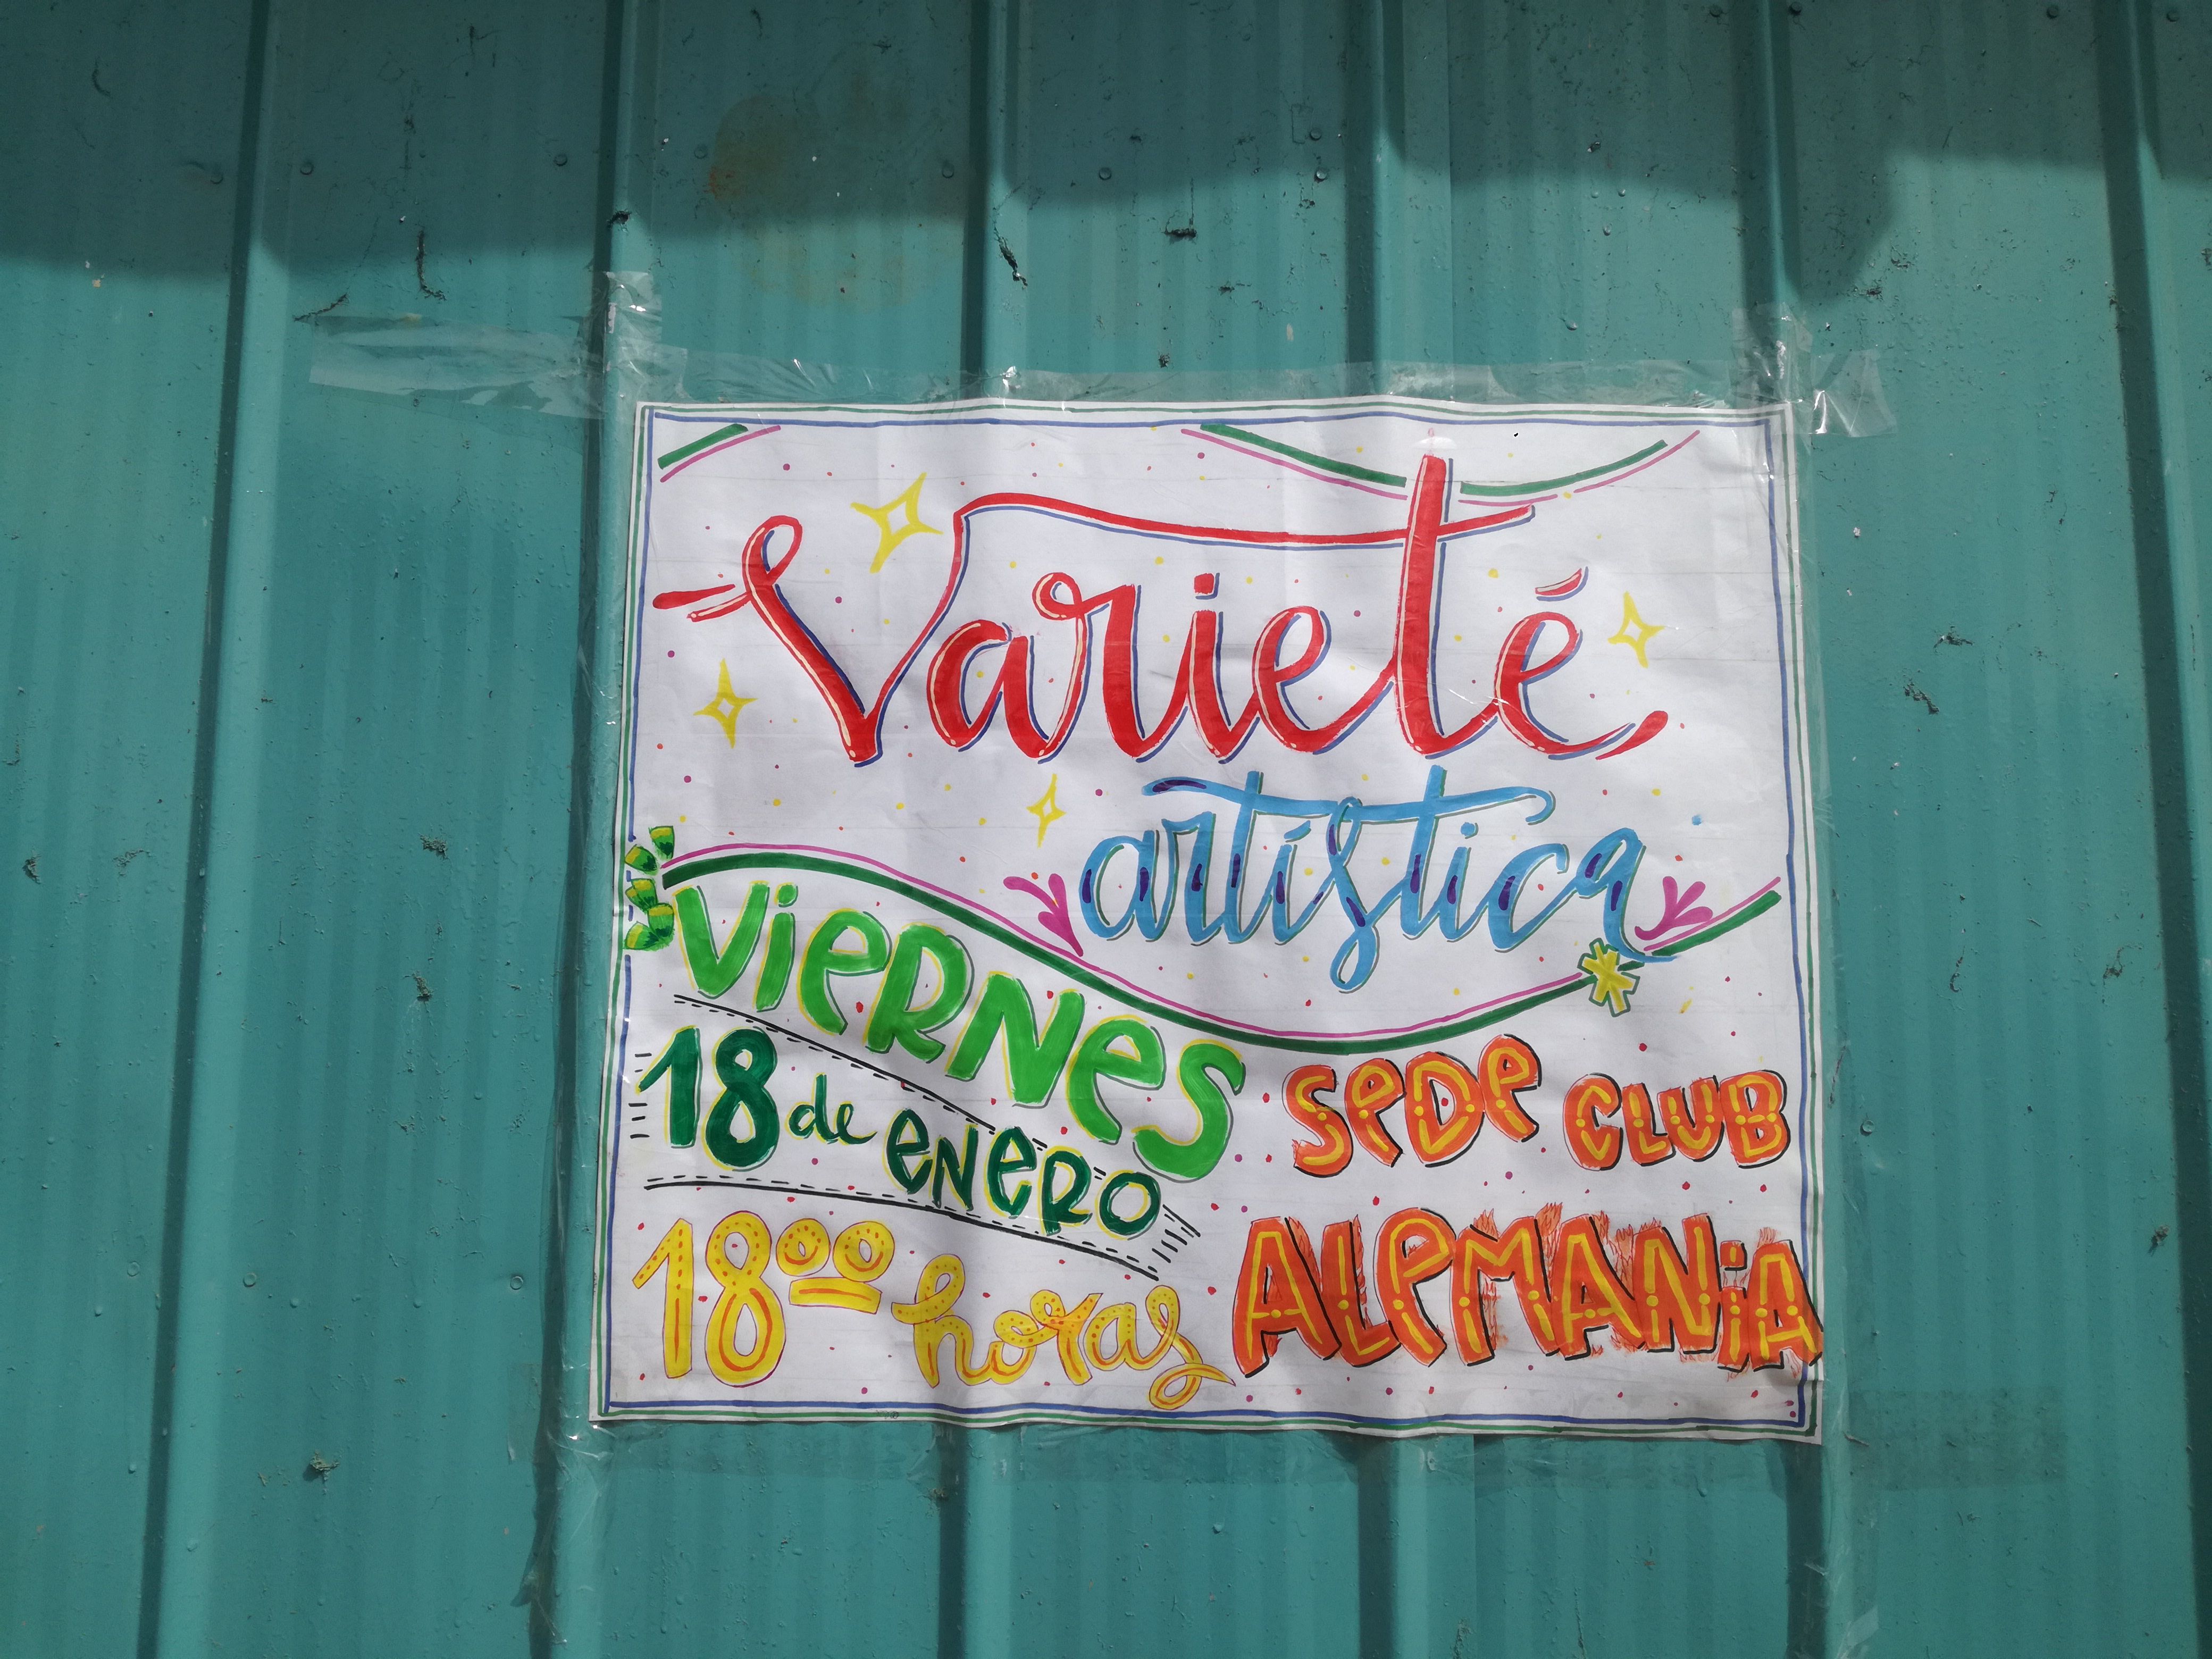 Varieté
artística
VIERNES
18 de ENERO
18:00 horas
SEDE CLUB
ALEMANIA